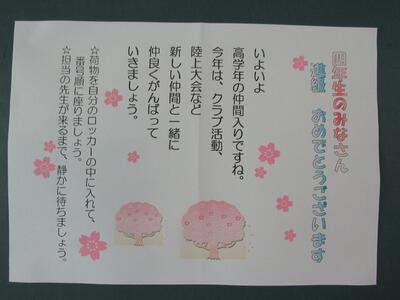 四年生のみなさん
進級　おめでとうございます
いよいよ
高学年の仲間入りですね。
今年は、クラブ活動、
陸上大会など
新しい仲間と一緒に
仲良くがんばって
いきましょう。
☆荷物を自分のロッカーの中に入れて、
番号順に座りましょう。
☆担当の先生が来るまで、静かに待ちましょう。